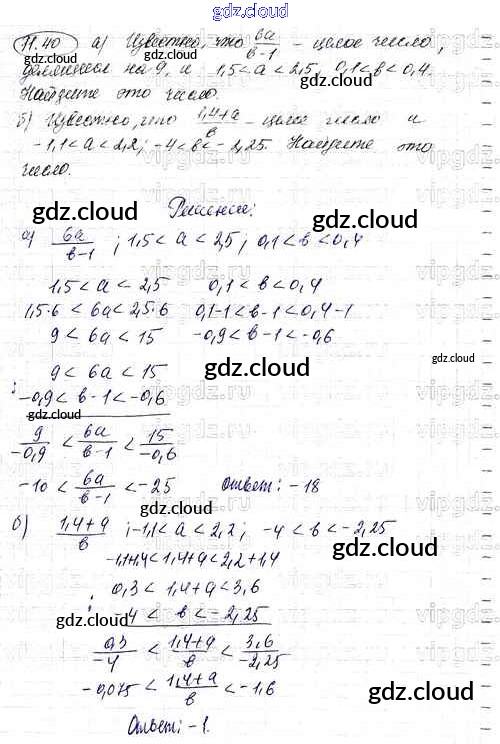 gdz.cloud
11.40 а) Известно, что 6a/(в-1) - целое число,
делимое на 9, и 1,5 < a < 2,5, 0,1 < в < 0,4.
Найдите это число.
б) Известно, что (1,4+a)/в - целое число и
-1,1 < a < 2,2; -4 < в < -2,25. Найдите это
число.
Решение:
gdz.cloud gdz.cloud
а) 6a/(в-1) ; 1,5 < a < 2,5; 0,1 < в < 0,4
1,5 < a < 2,5 0,1 < в < 0,4
1,5·6 < 6a < 2,5·6 0,1-1 < в-1 < 0,4-1
9 < 6a < 15 -0,9 < в-1 < -0,6
gdz.cloud
gdz.cloud
9 < 6a < 15
: -0,9 < в-1 < -0,6
gdz.cloud
9/-0,9 < 6a/(в-1) < 15/-0,6
gdz.cloud
-10 < 6a/(в-1) < -25 Ответ: -18
б) (1,4+a)/в ; -1,1 < a < 2,2; -4 < в < -2,25
gdz.cloud
-1,1+1,4 < 1,4+a < 2,2+1,4
0,3 < 1,4+a < 3,6
: -4 < в < -2,25
gdz.cloud gdz.cloud
0,3/-4 < (1,4+a)/в < 3,6/-2,25
-0,075 < (1,4+a)/в < -1,6
gdz.cloud
Ответ: -1.